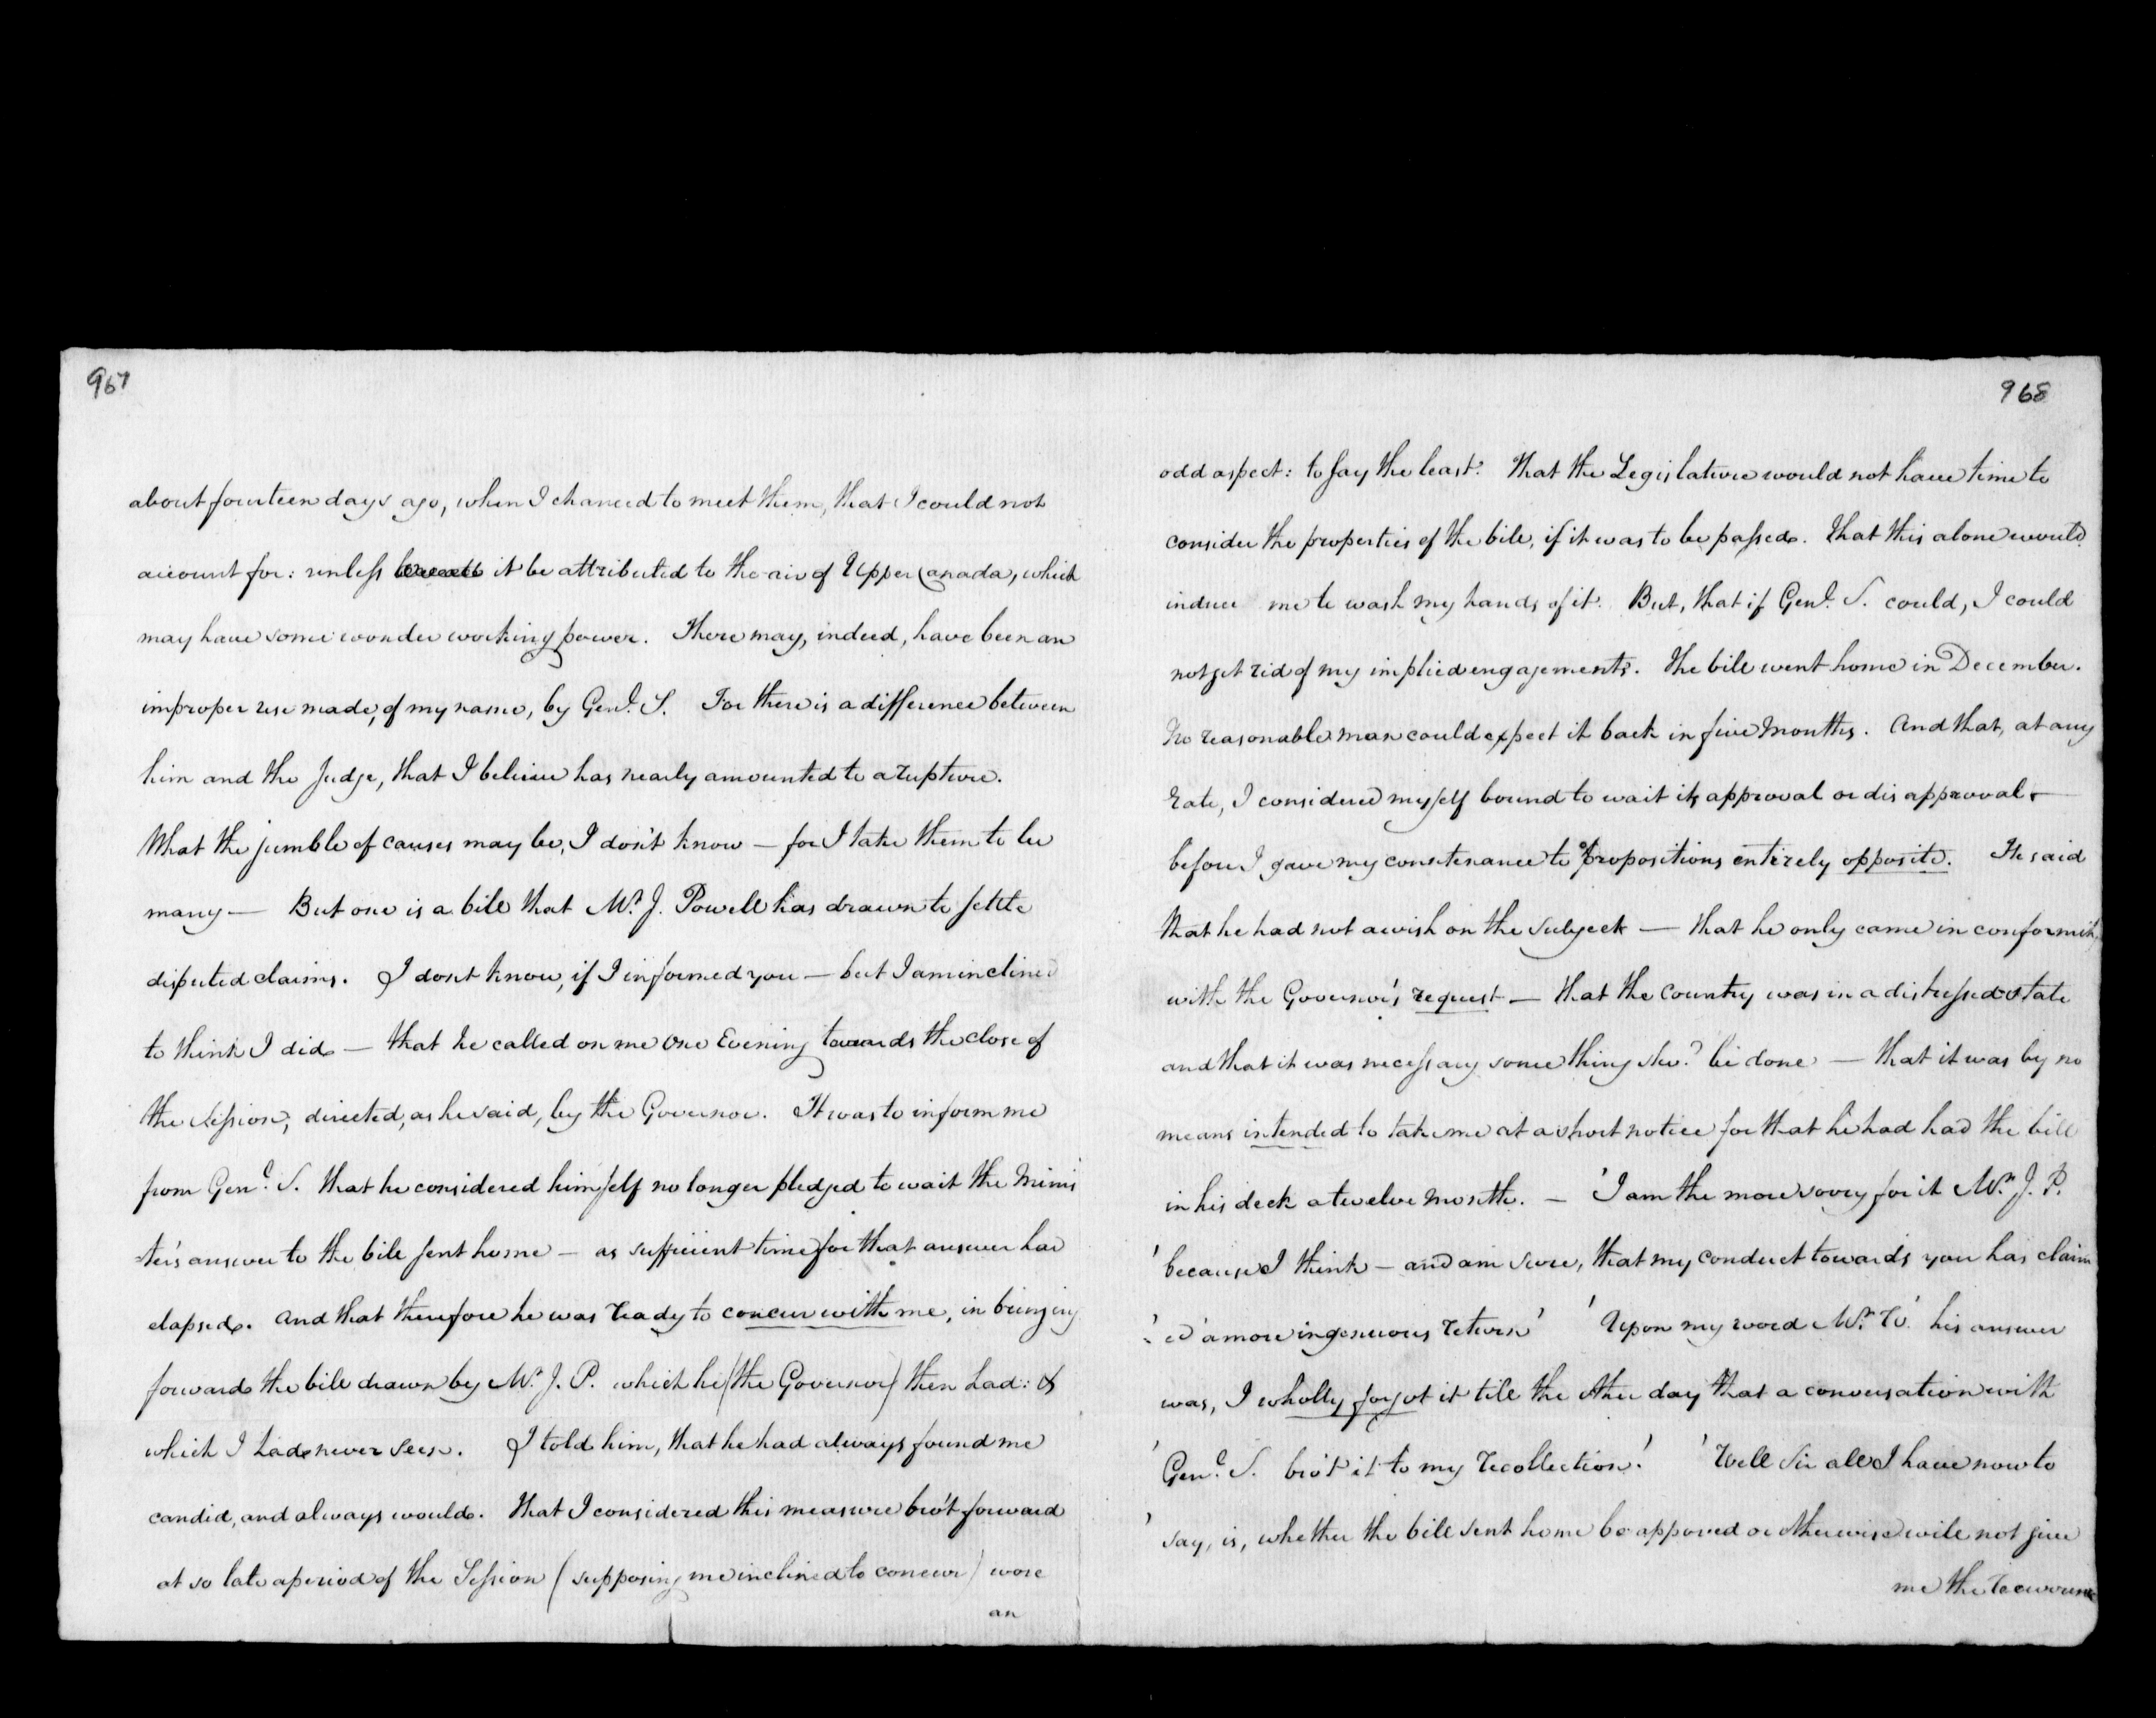 967
about fourteen days ago, when I chanced to meet them, that I could not
account for: unless it be attributed to the air of Upper Canada, which
may have some wonder working power. There may, indeed, have been an
improper use made, of my name, by Genl. S. For there is a difference between
him and the Judge, that I believe has nearly amounted to a rupture.
What the jumble of causes may be, I don't know — for I take them to be
many — But one is a bill that Mr. J. Powell has drawn to settle
disputed claims. I don't know, if I informed you — but I am inclined
to think I did — that he called on me one Evening towards the close of
the Session, directed, as he said, by the Governor. It was to inform me
from Genl. S. that he considered himself no longer pledged to wait the Minis
-ter's answer to the bill sent home — as sufficient time for that answer had
elapsed. And that therefore he was ready to concur with me, in bringing
forward the bill drawn by Mr. J. P. which he (the Governor) then had: &
which I had never seen. I told him, that he had always found me
candid, and always would. That I considered this measure bro't forward
at so late a period of the Session (supposing me inclined to concur) wore
an
968
odd aspect: to say the least. That the Legislature would not have time to
consider the properties of the bill, if it was to be passed. That this alone would
induce me to wash my hands of it. But, that if Genl. S. could, I could
not get rid of my implied engagements. The bill went home in December.
No reasonable man could expect it back in five months. And that, at any
rate, I considered myself bound to wait its approval or disapproval
before I gave my countenance to propositions entirely opposite. He said
that he had not a wish on the subject — that he only came in conformity
with the Governor's request — that the Country was in a distressed state
and that it was necessary something shd. be done — that it was by no
means intended to take me at a short notice for that he had had the bill
in his desk a twelve month. — 'I am the more sorry for it Mr. J. P.
'because I think — and am sure, that my conduct towards you has claim
'ed a more ingenuous return' 'Upon my word Mr. W.' his answer
was, I wholly forgot it till the other day that a conversation with
'Genl. S. bro't it to my recollection.' 'Well Sir all I have now to
'say, is, whether the bill sent home be appoved or otherwise will not give
me the